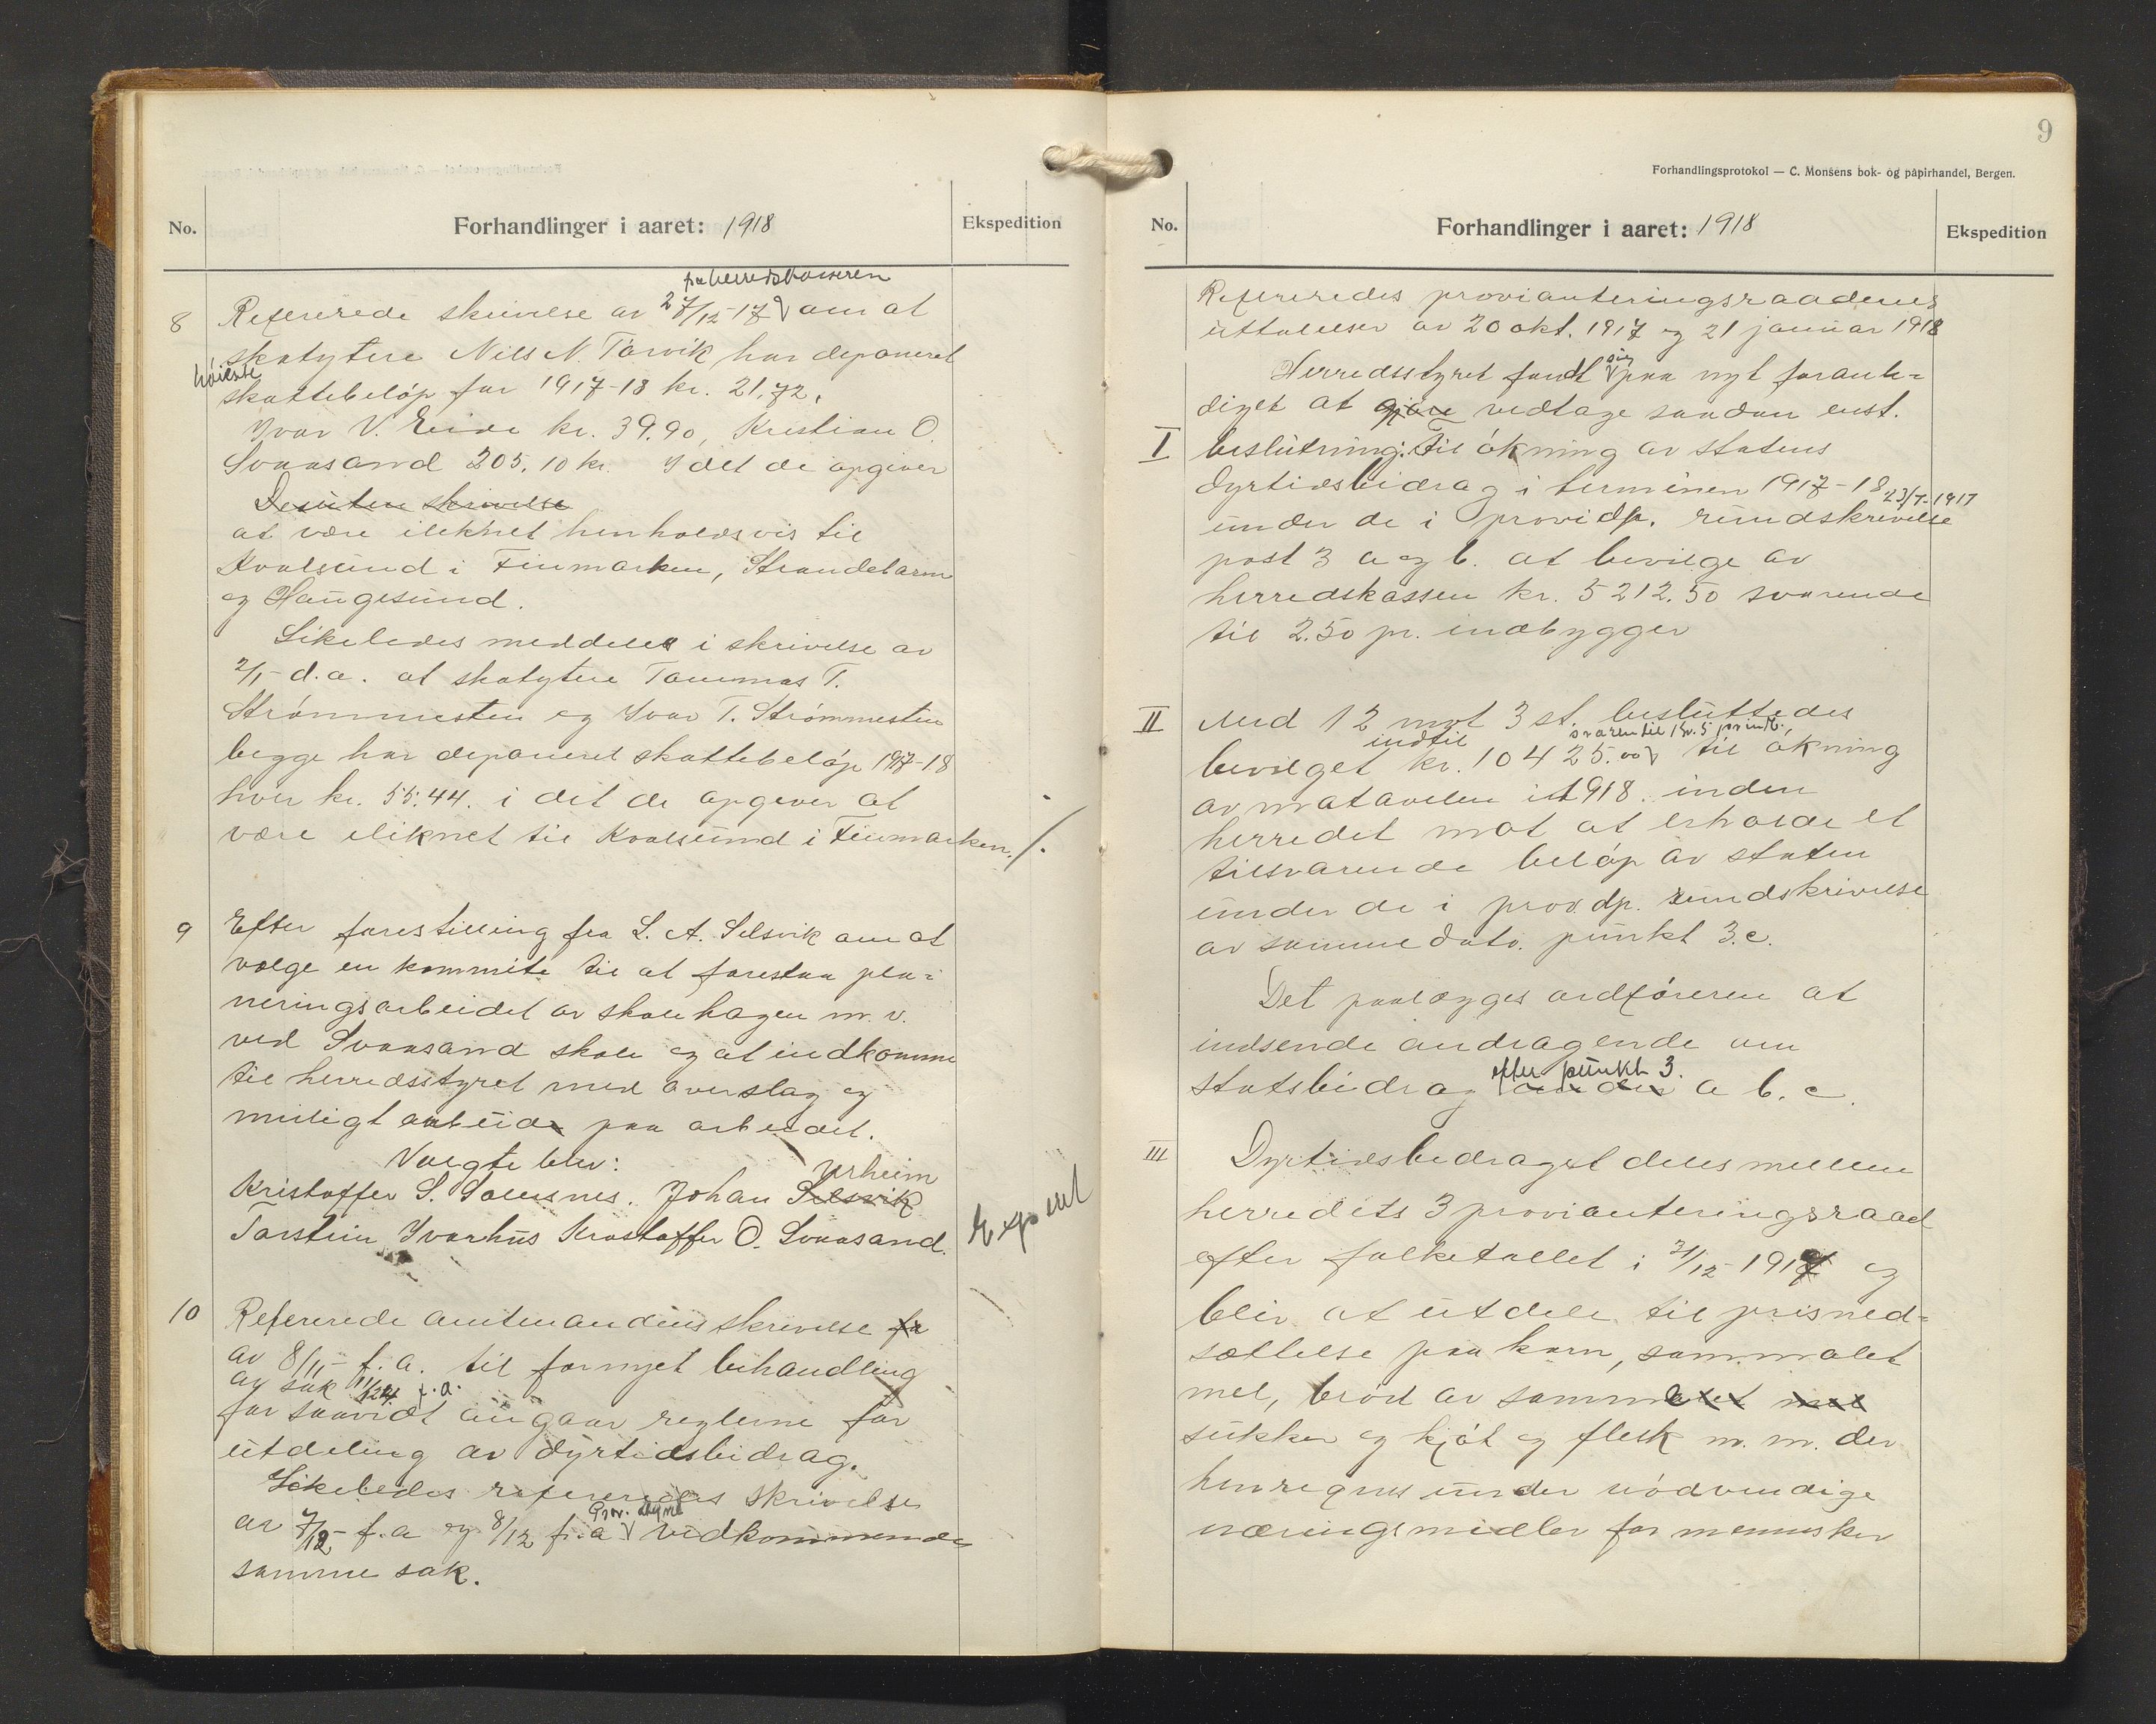 No.
Forhandlinger i aaret: 1918
Ekspedition
fra herredskasseren
8 Refererede skrivelse av 27/12-17 om at
skatytere Nils N. Tørvik har deponeret
høieste
skattebeløp for 1917-18 kr. 21,72,
Ivar V. Eide kr. 39.90, Kristian O.
Svaasand 205.10 kr. I det de opgiver
Desuten skrivelse
at være iliknet henholdsvis til
Kvalsund i Finmarken, Strandebarm
og Haugesund.
Likeledes meddeles i skrivelse av
2/1- d.a. at skatytere Tommas T.
Strømmesten og Ivar T. Strømmesten
begge har deponeret skattebeløp 1917-18
hver kr. 55.44. i det de opgever at
være iliknet til Kvalsund i Finmarken. ./.
9 Efter forestilling fra L. A. Selsvik om at
vælge en kommite til at forestaa pla-
neringsarbeidet av skolehagen m. v.
ved Svaasand skole og at indkomme
til herredsstyret med overslag og
muligt anbud paa arbeidet.
Valgte blev:
Urheim
Kristoffer S. Solesnes. Johan Selsvik
Torstein Ivarhus Kristoffer O. Svaasand.
Exped
10 Refererede amtmandens skrivelse fra
av 8/11- f. a. til fornyet behandling
av sak 11/124 f. a.
for saavidt angaar reglerne for
utdeling av dyrtidsbidrag.
Likeledes refereredes skrivelse
Prov.
av 7/12- f. a og 8/12 f. a vedkommende
samme sak.
9
Forhandlingsprotokol — C. Monsens bok- og papirhandel, Bergen.
No.
Forhandlinger i aaret: 1918
Ekspedition
Refereredes provianteringsraadenes
uttalelser av 20 okt. 1917 og 21 januar 1918
sig
Herredsstyret fandt paa nyt foranle-
diget at gjøre vedtage saadan enst.
I beslutning: Til økning av statens
dyrtidsbidrag i terminen 1917-18
23/7-1917
under de i providp. rundskrivelse
post 3 a og b. at bevilge av
herredskassen kr. 5212.50 svarende
til 2.50 pr. indbygger
II Med 12 mot 3 st. besluttedes
indtil svarende til kr. 5 pr. indb.,
bevilget kr. 10425.00 til økning
av matavlen i 1918. inden
herredet mot at erholde et
tilsvarende beløp av staten
under de i prov. dp. rundskrivelse
av samme dato. punkt 3.c.
Det paalægges ordføreren at
indsende andragende om
efter punkt 3.
statsbidrag under a b. c.
III Dyrtidsbidraget deles mellem
herredets 3 provianteringsraad
efter folketallet i 31/12-1917 og
blir at utdele til prisned-
sættelse paa korn, sammalet
mel, brød av sammalet mel
sukker og kjøt og flesk m. m. der
henregnes under nødvendige
næringsmidler for mennesker